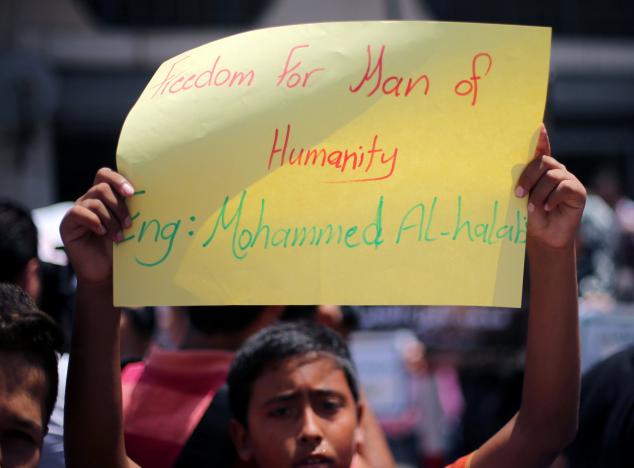 Freedom For Man of
Humanity
Eng: Mohammed Al-halabi